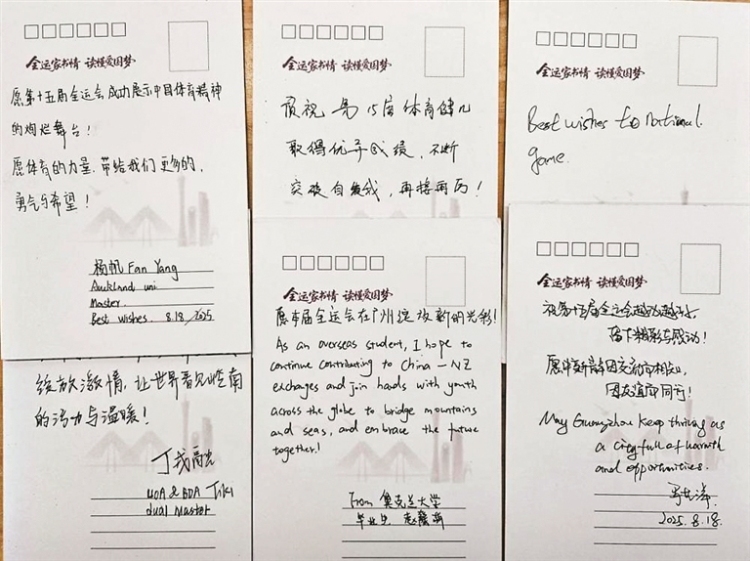 全运家书情 读懂爱国梦
愿第十五届全运会成功展示中国体育精神
的绚烂舞台!
愿体育的力量,带给我们更多的,
勇气与希望!
杨帆 Fan Yang
Auckland uni
Master
Best wishes. 8.18/2025
全运家书情 读懂爱国梦
预祝第15届体育健儿
取得优异成绩,不断
突破自我,再接再厉!
全运家书情 读懂爱国梦
Best wishes to national
game.
绽放激情,让世界看见岭南
的活力与温暖!
UOA & BDA Tiki
dual Master
全运家书情 读懂爱国梦
愿本届全运会在广州绽放新的光彩!
As an overseas student, I hope to
continue contributing to China-NZ
exchages and join hands with youth
across the globe to bridge mountains
and seas, and embrace the future
together!
From 奥克兰大学
毕业生 赵
全运家书情 读懂爱国梦
祝第十五届全运会越办越
精彩与感动!
愿中新
因友谊而同行!
May Guangzhou keep thriving as
a city full of warmth
and opportunities.
2025.8.18.